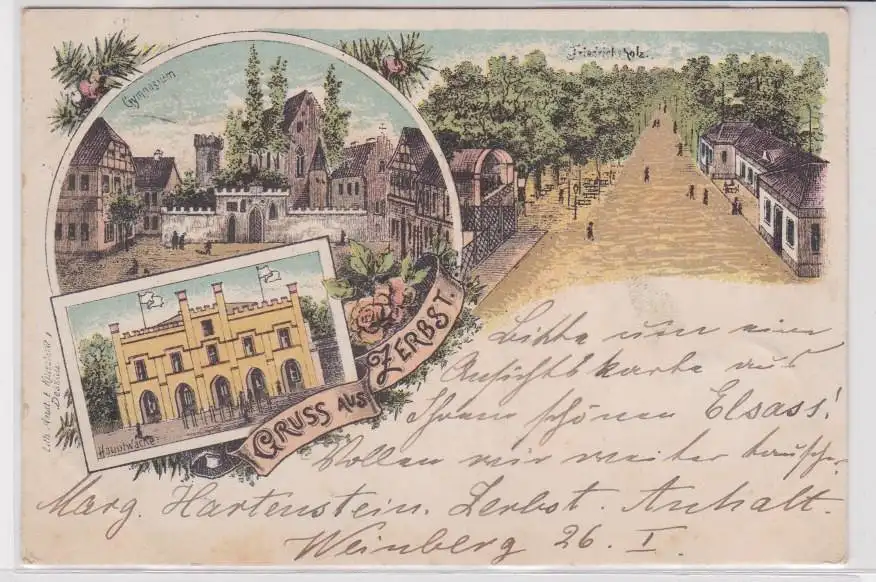 Gymnasium
Friedrichsholz.
Hauptwache
GRUSS AUS ZERBST.
Bitte um eine
Ansichtskarte aus
Ihrem schönen Elsass!
Wollen wir weiter tauschen.
Marg. Hartenstein. Zerbst. Anhalt.
Weinberg 26. I.